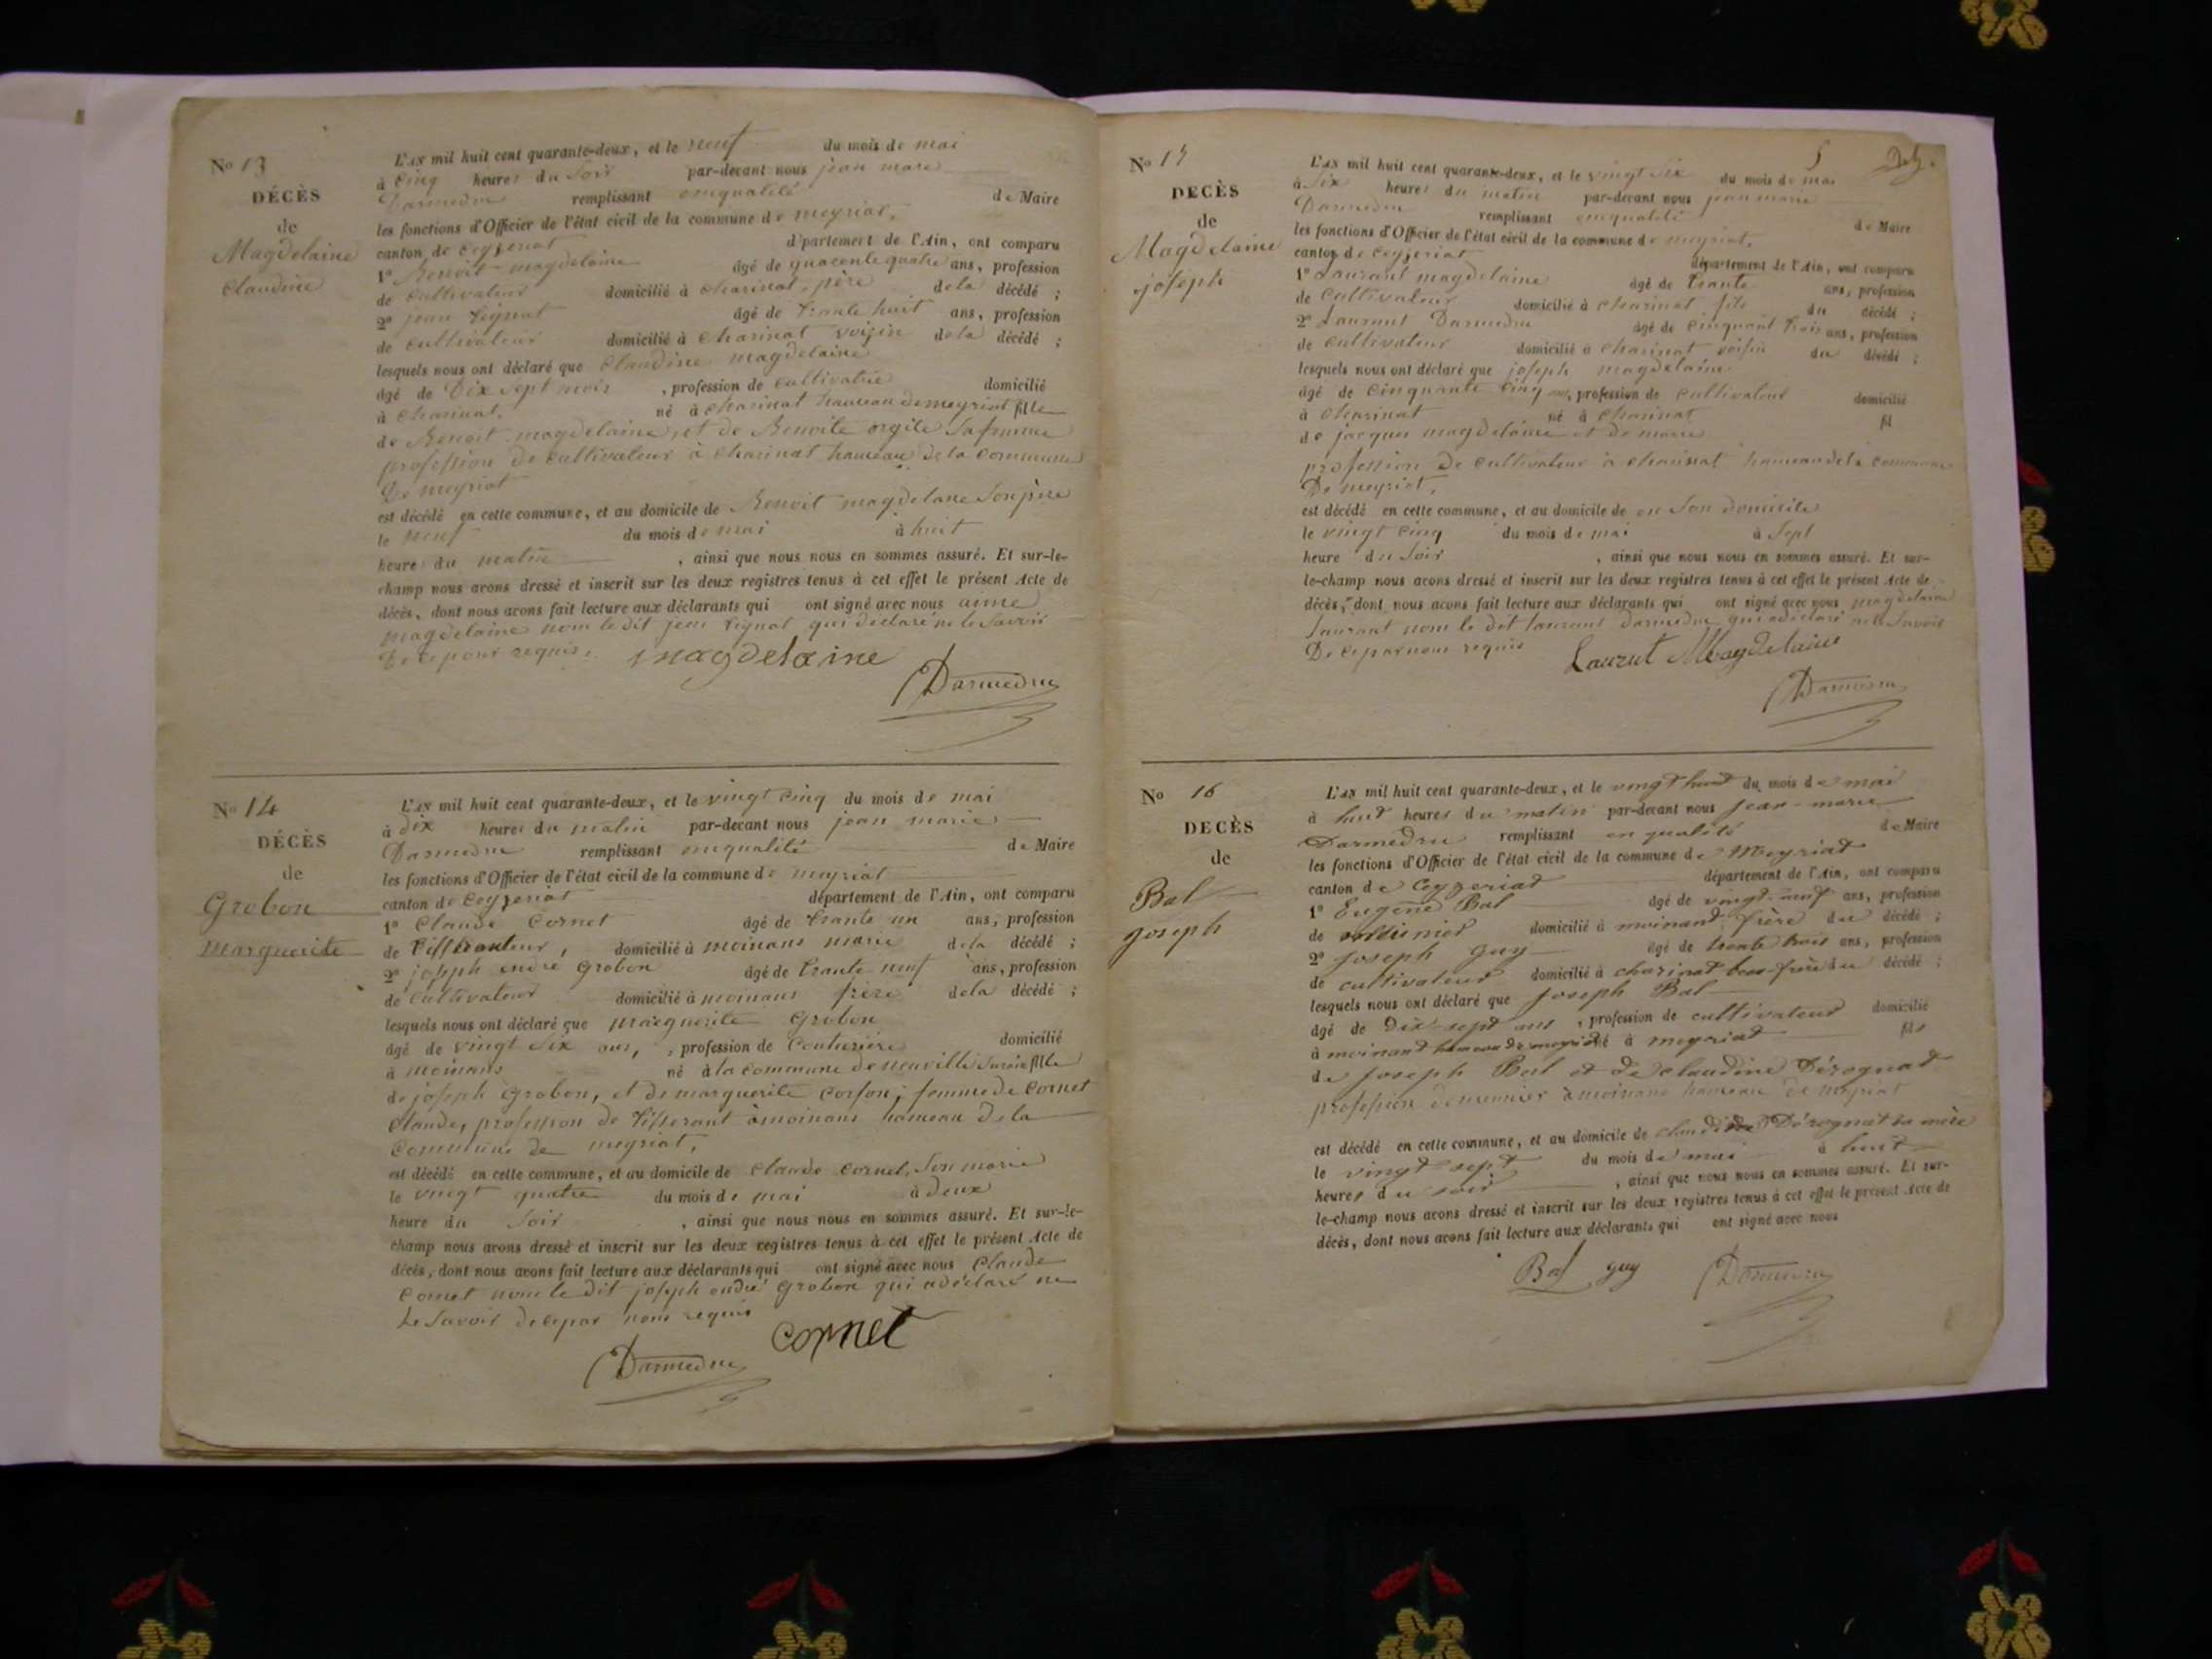 No 13
DÉCÈS
de
Magdelaine
Claudine
L'AN mil huit cent quarante-deux, et le neuf du mois de mai
à cinq heures du soir par-devant nous jean marie
Darmedru remplissant enqualité de Maire
les fonctions d'Officier de l'état civil de la commune de meyriat,
canton de ceyzeriat département de l'Ain, ont comparu
1º Benoit magdelaine âgé de quarente quatre ans, profession
de cultivateur domicilié à charinat, père dela décédé ;
2º jean Vignat âgé de trante huit ans, profession
de cultivateur domicilié à charinat voisin dela décédé ;
lesquels nous ont déclaré que Claudine magdelaine
âgé de Dix sept mois , profession de cultivatrie domicilié
à charinat, né à charinat hameau de meyriat fille
de Benoit magdelaine, et de Benoite orgite sa femme
profession de cultivateur à charinat hameau de la commune
De meyriat
est décédé en cette commune, et au domicile de Benoit magdelane son père
le neuf du mois de mai à huit
heures du matin , ainsi que nous nous en sommes assuré. Et sur-le-
champ nous avons dressé et inscrit sur les deux registres tenus à cet effet le présent Acte de
décès, dont nous avons fait lecture aux déclarants qui ont signé avec nous
magdelaine nom le dit jean Vignat qui declaré ne le savoir
De ce pour requis. magdelaine
Darmedru
No 14
DÉCÈS
de
Grobon
Marguerite
L'AN mil huit cent quarante-deux, et le vingt cinq du mois de mai
à dix heures du matin par-devant nous jean marie
Darmedru remplissant enqualité de Maire
les fonctions d'Officier de l'état civil de la commune de meyriat
canton de Ceyzeriat département de l'Ain, ont comparu
1º Claude Cornet âgé de trante un ans, profession
de tisseranteur, domicilié à moinans marie dela décédé ;
2º joseph andré Grobon âgé de trante neuf ans, profession
de cultivateur domicilié à moinans frère dela décédé ;
lesquels nous ont déclaré que marguerite Grobon
âgé de vingt six ans, , profession de Couturière domicilié
à moinans né à la commune de neuville surain fille
de joseph Grobon, et de marguerite Corson; femme de Cornet
Claude, profession de tisserant àmoinans hameau dela
Commune de meyriat,
est décédé en cette commune, et au domicile de Claude Cornet, son marie
le vingt quatre du mois de mai à deux
heure du soir , ainsi que nous nous en sommes assuré. Et sur-le-
champ nous avons dressé et inscrit sur les deux registres tenus à cet effet le présent Acte de
décès, dont nous avons fait lecture aux déclarants qui ont signé avec nous Claude
Cornet nom le dit joseph andré Grobon qui adéclaré ne
Le savoir de ce par nous requis Cornet
Darmedru
No 15
DÉCÈS
de
Magdelaine
joseph
5
L'AN mil huit cent quarante-deux, et le vingt six du mois de mai
à six heures du matin par-devant nous jean marie
Darmedru remplissant enqualité de Maire
les fonctions d'Officier de l'état civil de la commune de meyriat,
canton de Ceyzeriat département de l'Ain, ont comparu
1º Laurant magdelaine âgé de trante ans, profession
de cultivateur domicilié à charinat fils du décédé ;
2º Laurant Darmedru âgé de cinquant trois ans, profession
de cultivateur domicilié à charinat voisin du décédé ;
lesquels nous ont déclaré que joseph magdelaine
âgé de cinquante cinq ans, profession de cultivateur domicilié
à charinat né à charinat fil
de jacques magdelaine et de marie
profession de cultivateur à charinat hameau dela commune
De meyriat,
est décédé en cette commune, et au domicile de en son domicile
le vingt cinq du mois de mai à sept
heure du soir , ainsi que nous nous en sommes assuré. Et sur-
le-champ nous avons dressé et inscrit sur les deux registres tenus à cet effet le présent Acte de
décès, dont nous avons fait lecture aux déclarants qui ont signé avec nous magdelaine
Laurant nom le dit laurant Darmedru qui adéclaré ne le savoir
De ce par nous requis Laurut Magdelaine
Darmedru
No 16
DÉCÈS
de
Bal
Joseph
L'AN mil huit cent quarante-deux, et le vingt huit du mois de mai
à huit heures du matin par-devant nous jean-marie
Darmedru remplissant en qualité de Maire
les fonctions d'Officier de l'état civil de la commune de Meyriat
canton de Ceyzeriat département de l'Ain, ont comparu
1º Eugène Bal âgé de vingt-neuf ans, profession
de domicilié à moinant frère du décédé ;
2º Joseph Guy âgé de trente trois ans, profession
de cultivateur domicilié à charinat beau-frère du décédé ;
lesquels nous ont déclaré que Joseph Bal
âgé de Dix-sept ans , profession de cultivateur domicilié
à moinant hameau de meyriat né à meyriat fils
de Joseph Bal et de claudine Dérognat
profession de meunier à moinans hameau de meyriat
est décédé en cette commune, et au domicile de claudine Dérognat sa mère
le vingt sept du mois de mai à huit
heures du soir , ainsi que nous nous en sommes assuré. Et sur-
le-champ nous avons dressé et inscrit sur les deux registres tenus à cet effet le présent Acte de
décès, dont nous avons fait lecture aux déclarants qui ont signé avec nous
Bal guy Darmedru